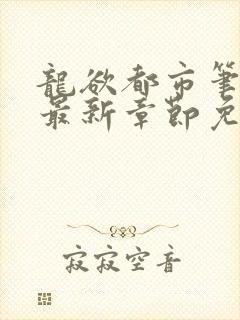 龍欲都市筆
最新章節免
寂寂空音